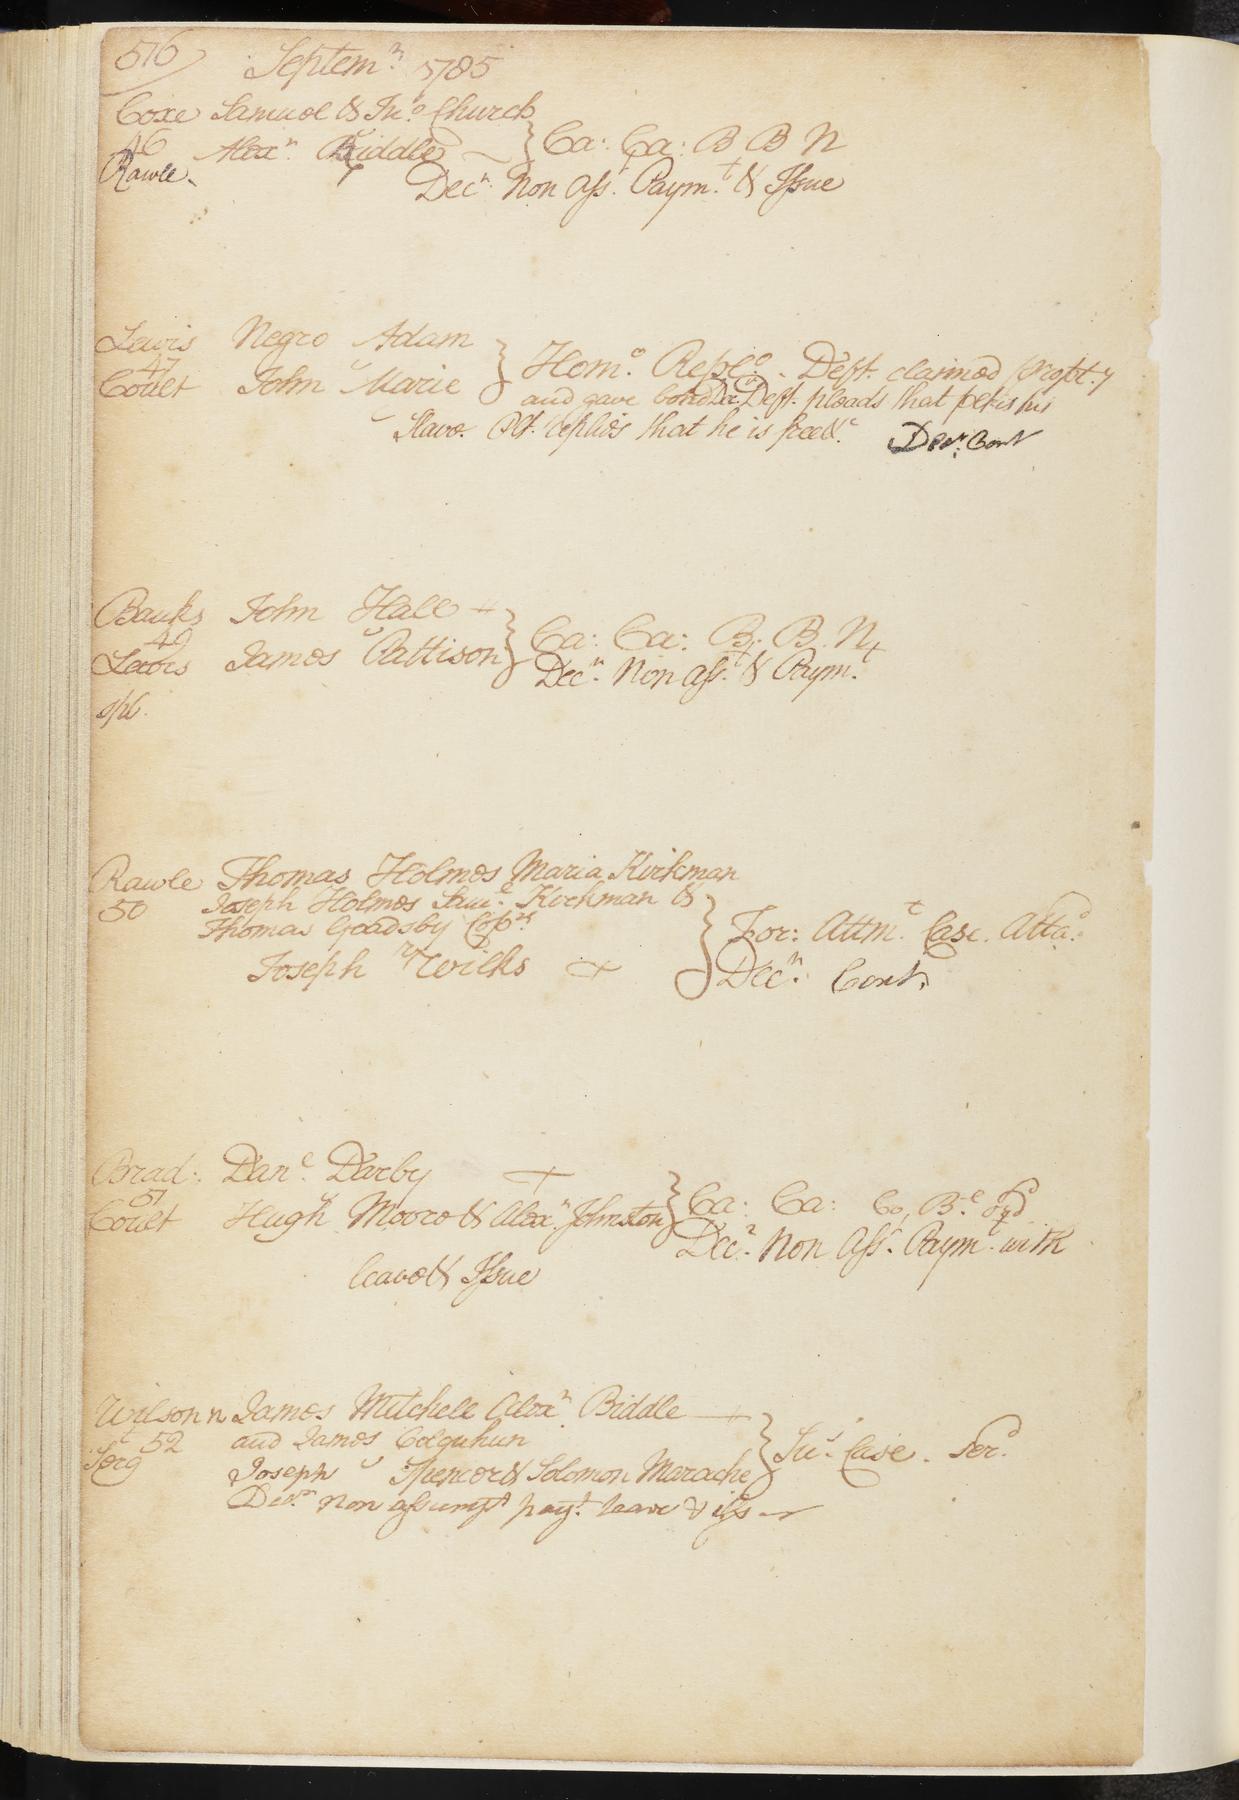 576 Septem.r 1785
Coxe Samuel & Jn.o Church
46 Alex.r Biddle } Ca: Ca: B B N
Rawle. v Dec.n Non Ass.t Paym.t & Issue
Lewis Negro Adam
47 v } Hom.o Repl.o - Deft. claimed Propt.y
Coult John Marie and gave bond Dec.n Deft. pleads that he is his
Slave. Plt. replies that he is free &.c Dec.n Cont
Banks John Hall +
49 v } Ca: Ca: B. B. N
Lewis James Pattison Dec.n Non Ass.t & Paym.t
Rawle Thomas Holmes Maria Kirkman
50 Joseph Holmes Sam.l Kirkman &
Thomas Goadsby Cop.rs } For: Attm.t Case. Atta.d
Joseph Wilks + Dec.n Cont.
Brad: Dan.l Darby +
51 v } Ca: Ca: Co, B.l
Coult Hugh Moore & Alex.r Johnston Dec.n Non Ass.t Paym.t with
leave & Issue
Wilson n James Mitchell Alex.r Biddle +
52 and James Colquhun } Su.s Case. Ser.d
Serg.t Joseph Spencer & Solomon Marache
Dec.n non assumpt pay.t leave & iss